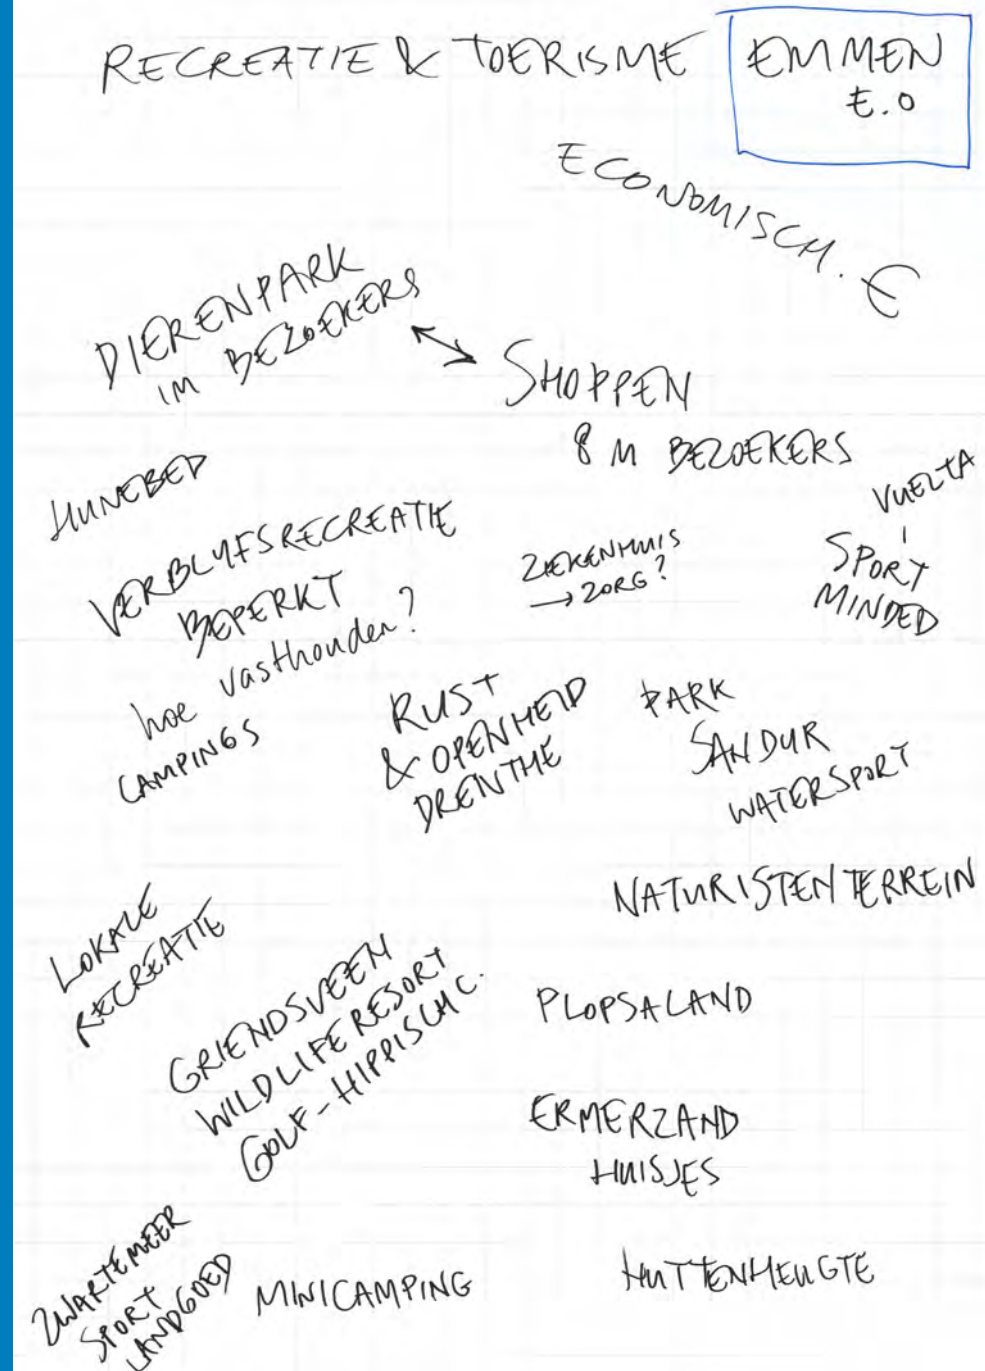 RECREATIE & TOERISME
EMMEN
E.O
ECONOMISCH. €
DIERENPARK
1M BEZOEKERS
SHOPPEN
8 M BEZOEKERS
HUNEBED
VERBLIJFSRECREATIE
BEPERKT
hoe vasthouden?
CAMPINGS
ZIEKENHUIS
→ ZORG?
VUELTA
SPORT
MINDED
RUST
& OPENHEID
DRENTHE
PARK
SANDUR
WATERSPORT
NATURISTENTERREIN
LOKALE
RECREATIE
GRIENDSVEEN
WILDLIFE RESORT
GOLF - HIPPISCH C.
PLOPSALAND
ERMERZAND
HUISJES
ZWARTEMEER
SPORT
LANDGOED
MINICAMPING
HUTTENHEUGTE